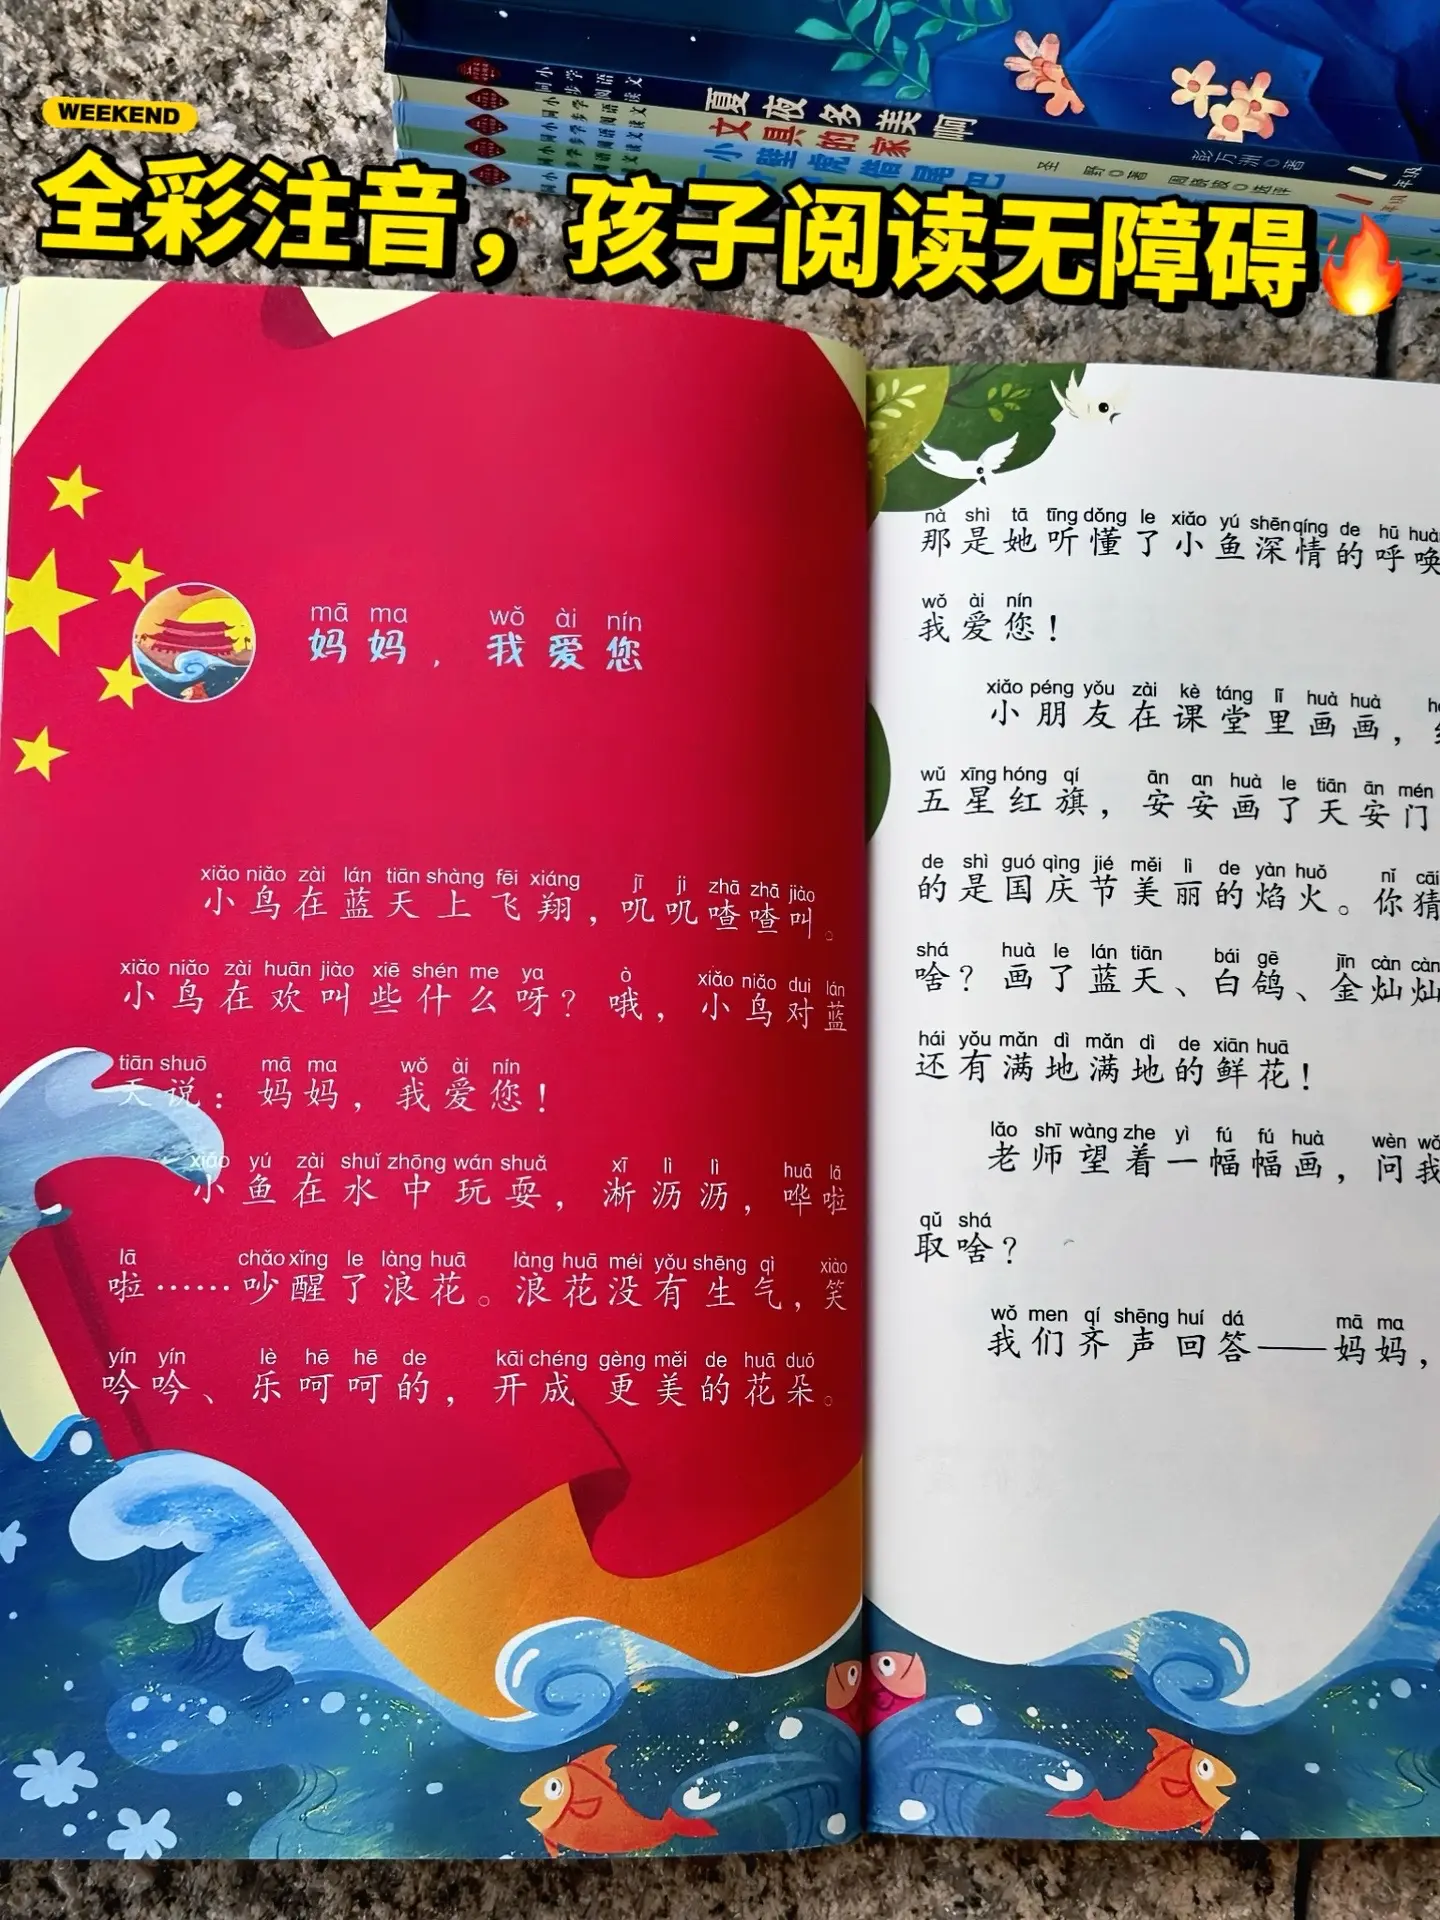 WEEKEND
全彩注音，孩子阅读无障碍
夏夜多美啊
彭万洲◎著
文具的家
圣野◎著
小壁虎借尾巴
mā ma wǒ ài nín
妈妈，我爱您
xiǎo niǎo zài lán tiān shàng fēi xiáng jī ji zhā zhā jiào
小鸟在蓝天上飞翔，叽叽喳喳叫。
xiǎo niǎo zài huān jiào xiē shén me ya ò xiǎo niǎo duì lán
小鸟在欢叫些什么呀？哦，小鸟对蓝
tiān shuō mā ma wǒ ài nín
天说：妈妈，我爱您！
xiǎo yú zài shuǐ zhōng wán shuǎ xī lì lì huā lā
小鱼在水中玩耍，淅沥沥，哗啦
lā chǎo xǐng le làng huā làng huā méi yǒu shēng qì xiào
啦……吵醒了浪花。浪花没有生气，笑
yín yín lè hē hē de kāi chéng gèng měi de huā duǒ
吟吟、乐呵呵的，开成更美的花朵。
nà shì tā tīng dǒng le xiǎo yú shēn qíng de hū huàn
那是她听懂了小鱼深情的呼唤
wǒ ài nín
我爱您！
xiǎo péng yǒu zài kè táng lǐ huà huà
小朋友在课堂里画画，
wǔ xīng hóng qí ān an huà le tiān ān mén
五星红旗，安安画了天安门
de shì guó qìng jié měi lì de yàn huǒ nǐ cāi
的是国庆节美丽的焰火。你猜
shá huà le lán tiān bái gē jīn càn càn
啥？画了蓝天、白鸽、金灿灿
hái yǒu mǎn dì mǎn dì de xiān huā
还有满地满地的鲜花！
lǎo shī wàng zhe yì fú fú huà wèn wǒ
老师望着一幅幅画，问我
qǔ shá
取啥？
wǒ men qí shēng huí dá mā ma
我们齐声回答——妈妈，